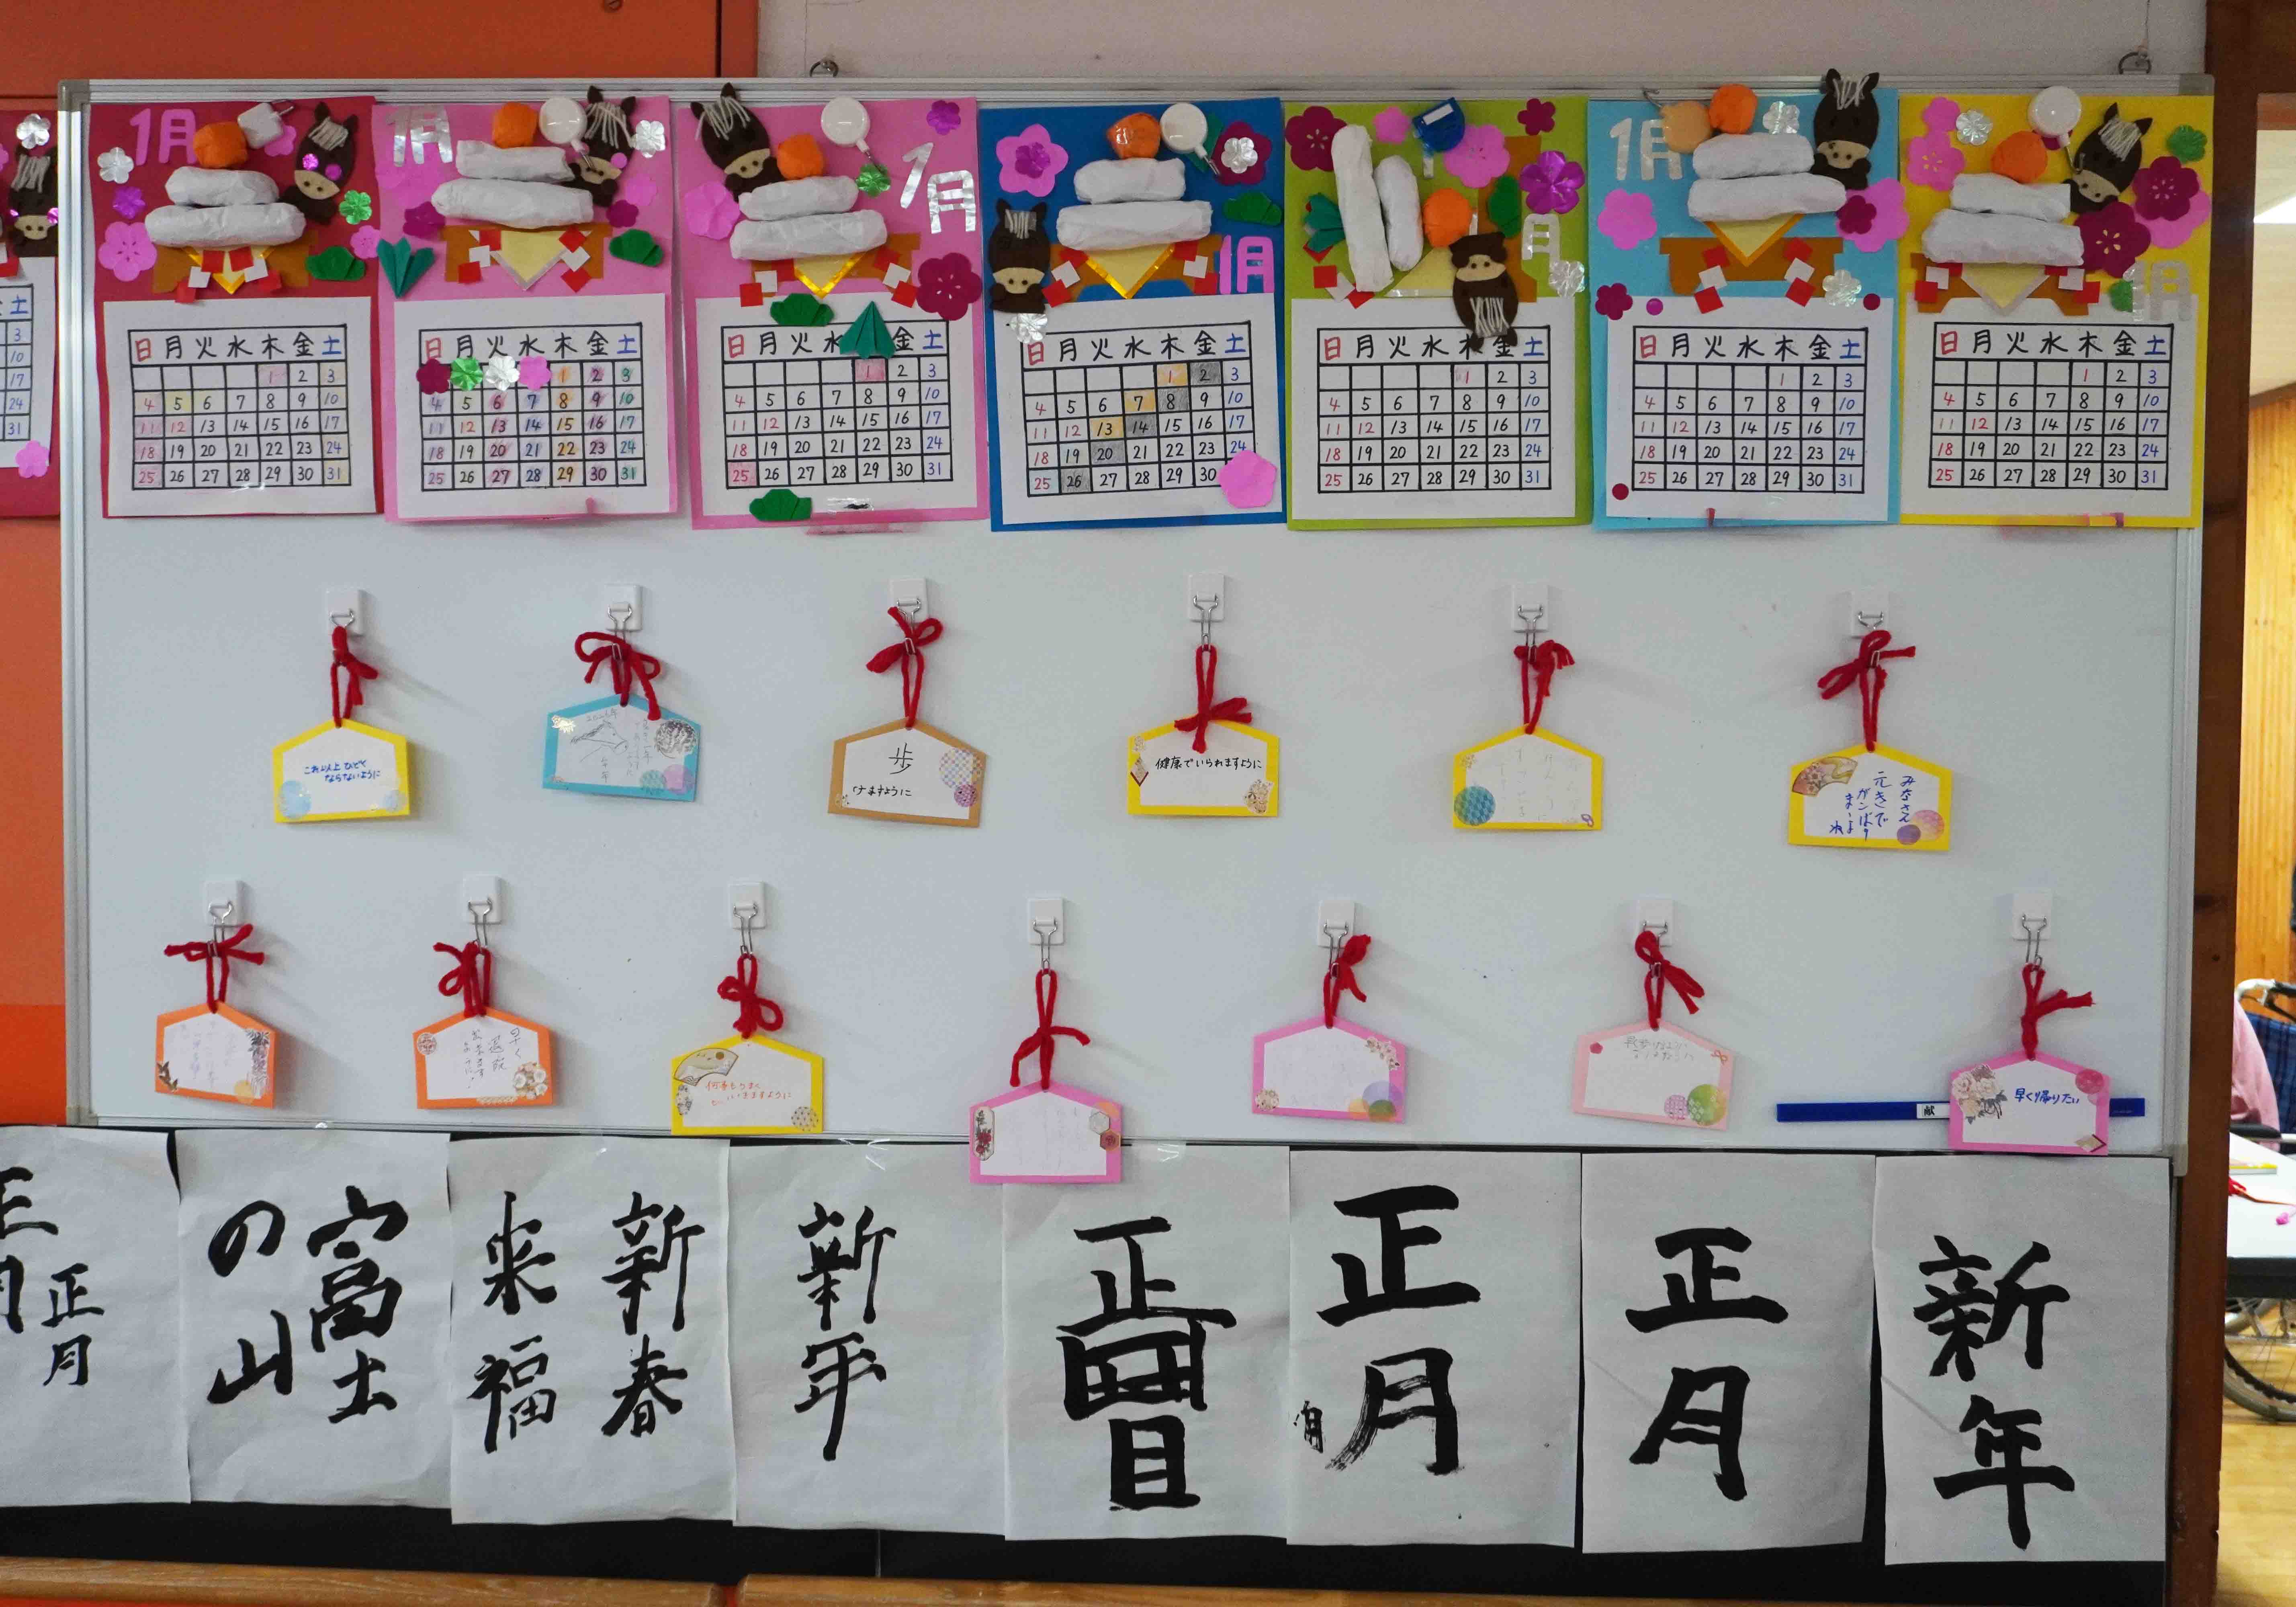 1月
1月
1月
1月
月
1月
1月
土
3
10
17
24
31
日 月 火 水 木 金 土
1 2 3
4 5 6 7 8 9 10
11 12 13 14 15 16 17
18 19 20 21 22 23 24
25 26 27 28 29 30 31
日 月 火 水 木 金 土
1 2 3
4 5 6 7 8 9 10
11 12 13 14 15 16 17
18 19 20 21 22 23 24
25 26 27 28 29 30 31
日 月 火 水 金 土
1 2 3
4 5 6 7 8 9 10
11 12 13 14 15 16 17
18 19 20 21 22 23 24
25 26 27 28 29 30 31
日 月 火 水 木 金 土
1 2 3
4 5 6 7 8 9 10
11 12 13 14 15 16 17
18 19 20 21 22 23 24
25 26 27 28 29 30
日 月 火 水 木 金 土
1 2 3
4 5 6 7 8 9 10
11 12 13 14 15 16 17
18 19 20 21 22 23 24
25 26 27 28 29 30 31
日 月 火 水 木 金 土
1 2 3
4 5 6 7 8 9 10
11 12 13 14 15 16 17
18 19 20 21 22 23 24
25 26 27 28 29 30 31
日 月 火 水 木 金 土
1 2 3
4 5 6 7 8 9 10
11 12 13 14 15 16 17
18 19 20 21 22 23 24
25 26 27 28 29 30 31
これ以上ひどく
ならないように
歩
けますように
健康でいられますように
みなさん
元きで
ガンばり
ましょ
早く
退院
出来ます
ように!
何事もうまく
いきますように
早く帰りたい
献
正月
正月
富士
の山
新春
来福
新年
正
目
正月
正月
新年